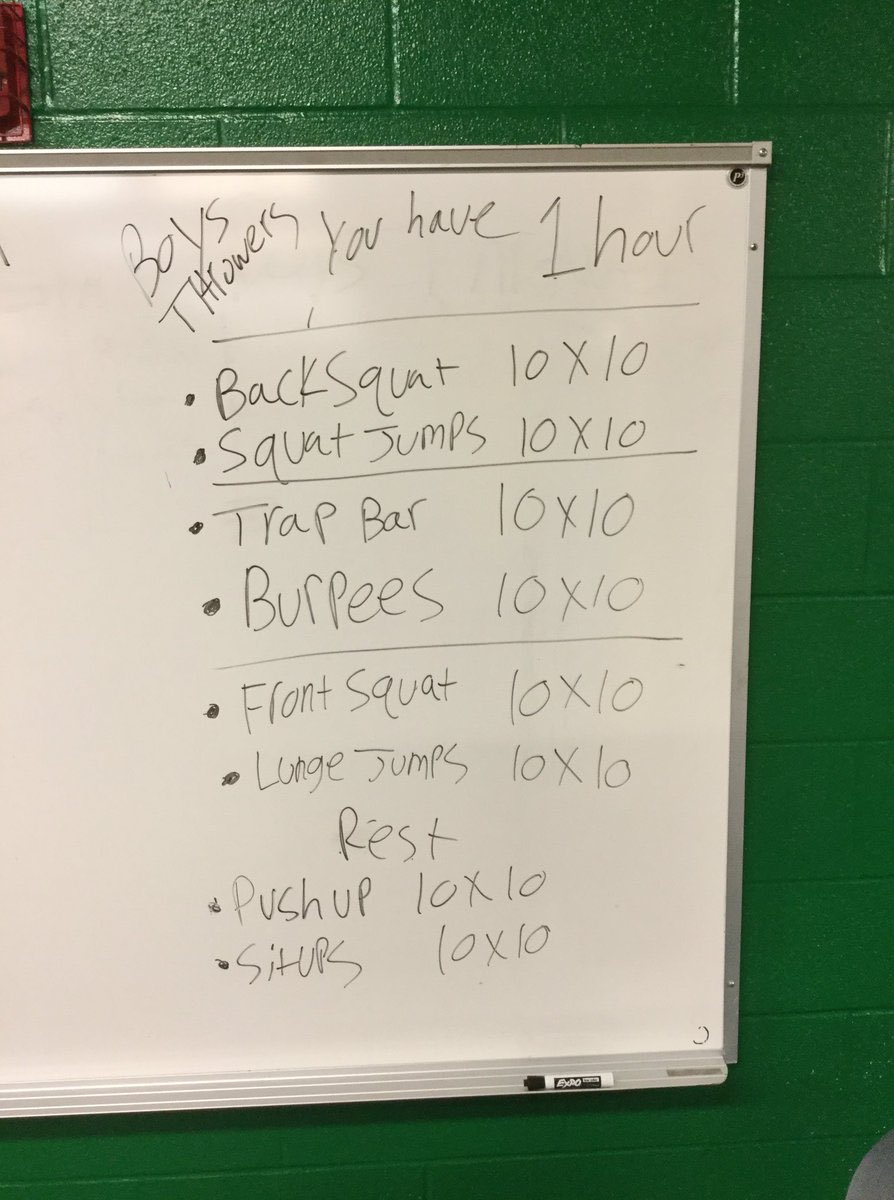 Boys Throwers You have 1 hour
• BackSquat 10 X 10
• Squat Jumps 10 X 10
• Trap Bar 10 X 10
• Burpees 10 X 10
• Front Squat 10 X 10
• Lunge Jumps 10 X 10
Rest
• Push up 10 X 10
• Situps 10 X 10
EXPO